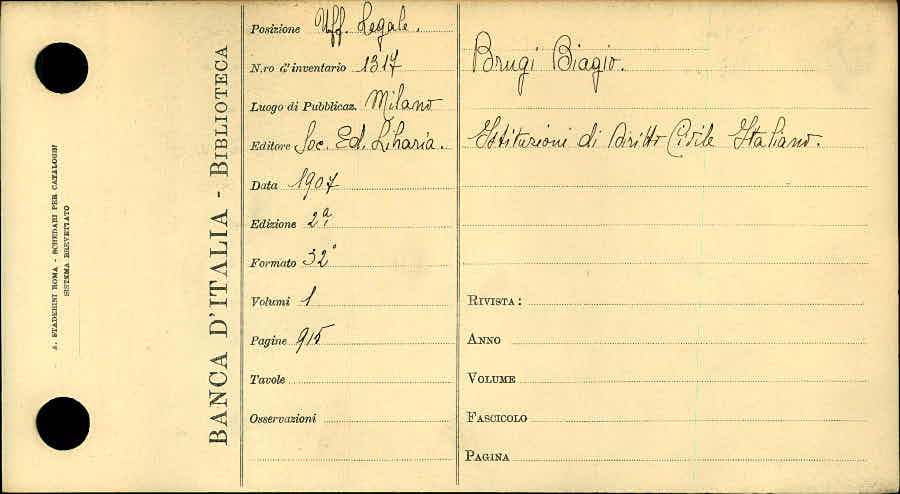 A. STADERINI ROMA - SCHEDARI PER CATALOGHI
SISTEMA BREVETTATO
BANCA D'ITALIA - BIBLIOTECA
Posizione Uff. Legale.
N.ro d'inventario 1317
Luogo di Pubblicaz. Milano
Editore Soc. Ed. Libraria.
Data 1907
Edizione 2ª
Formato 32°
Volumi 1
Pagine 915
Tavole
Osservazioni
Brugi Biagio.
Istituzioni di Diritto Civile Italiano.
RIVISTA:
ANNO
VOLUME
FASCICOLO
PAGINA